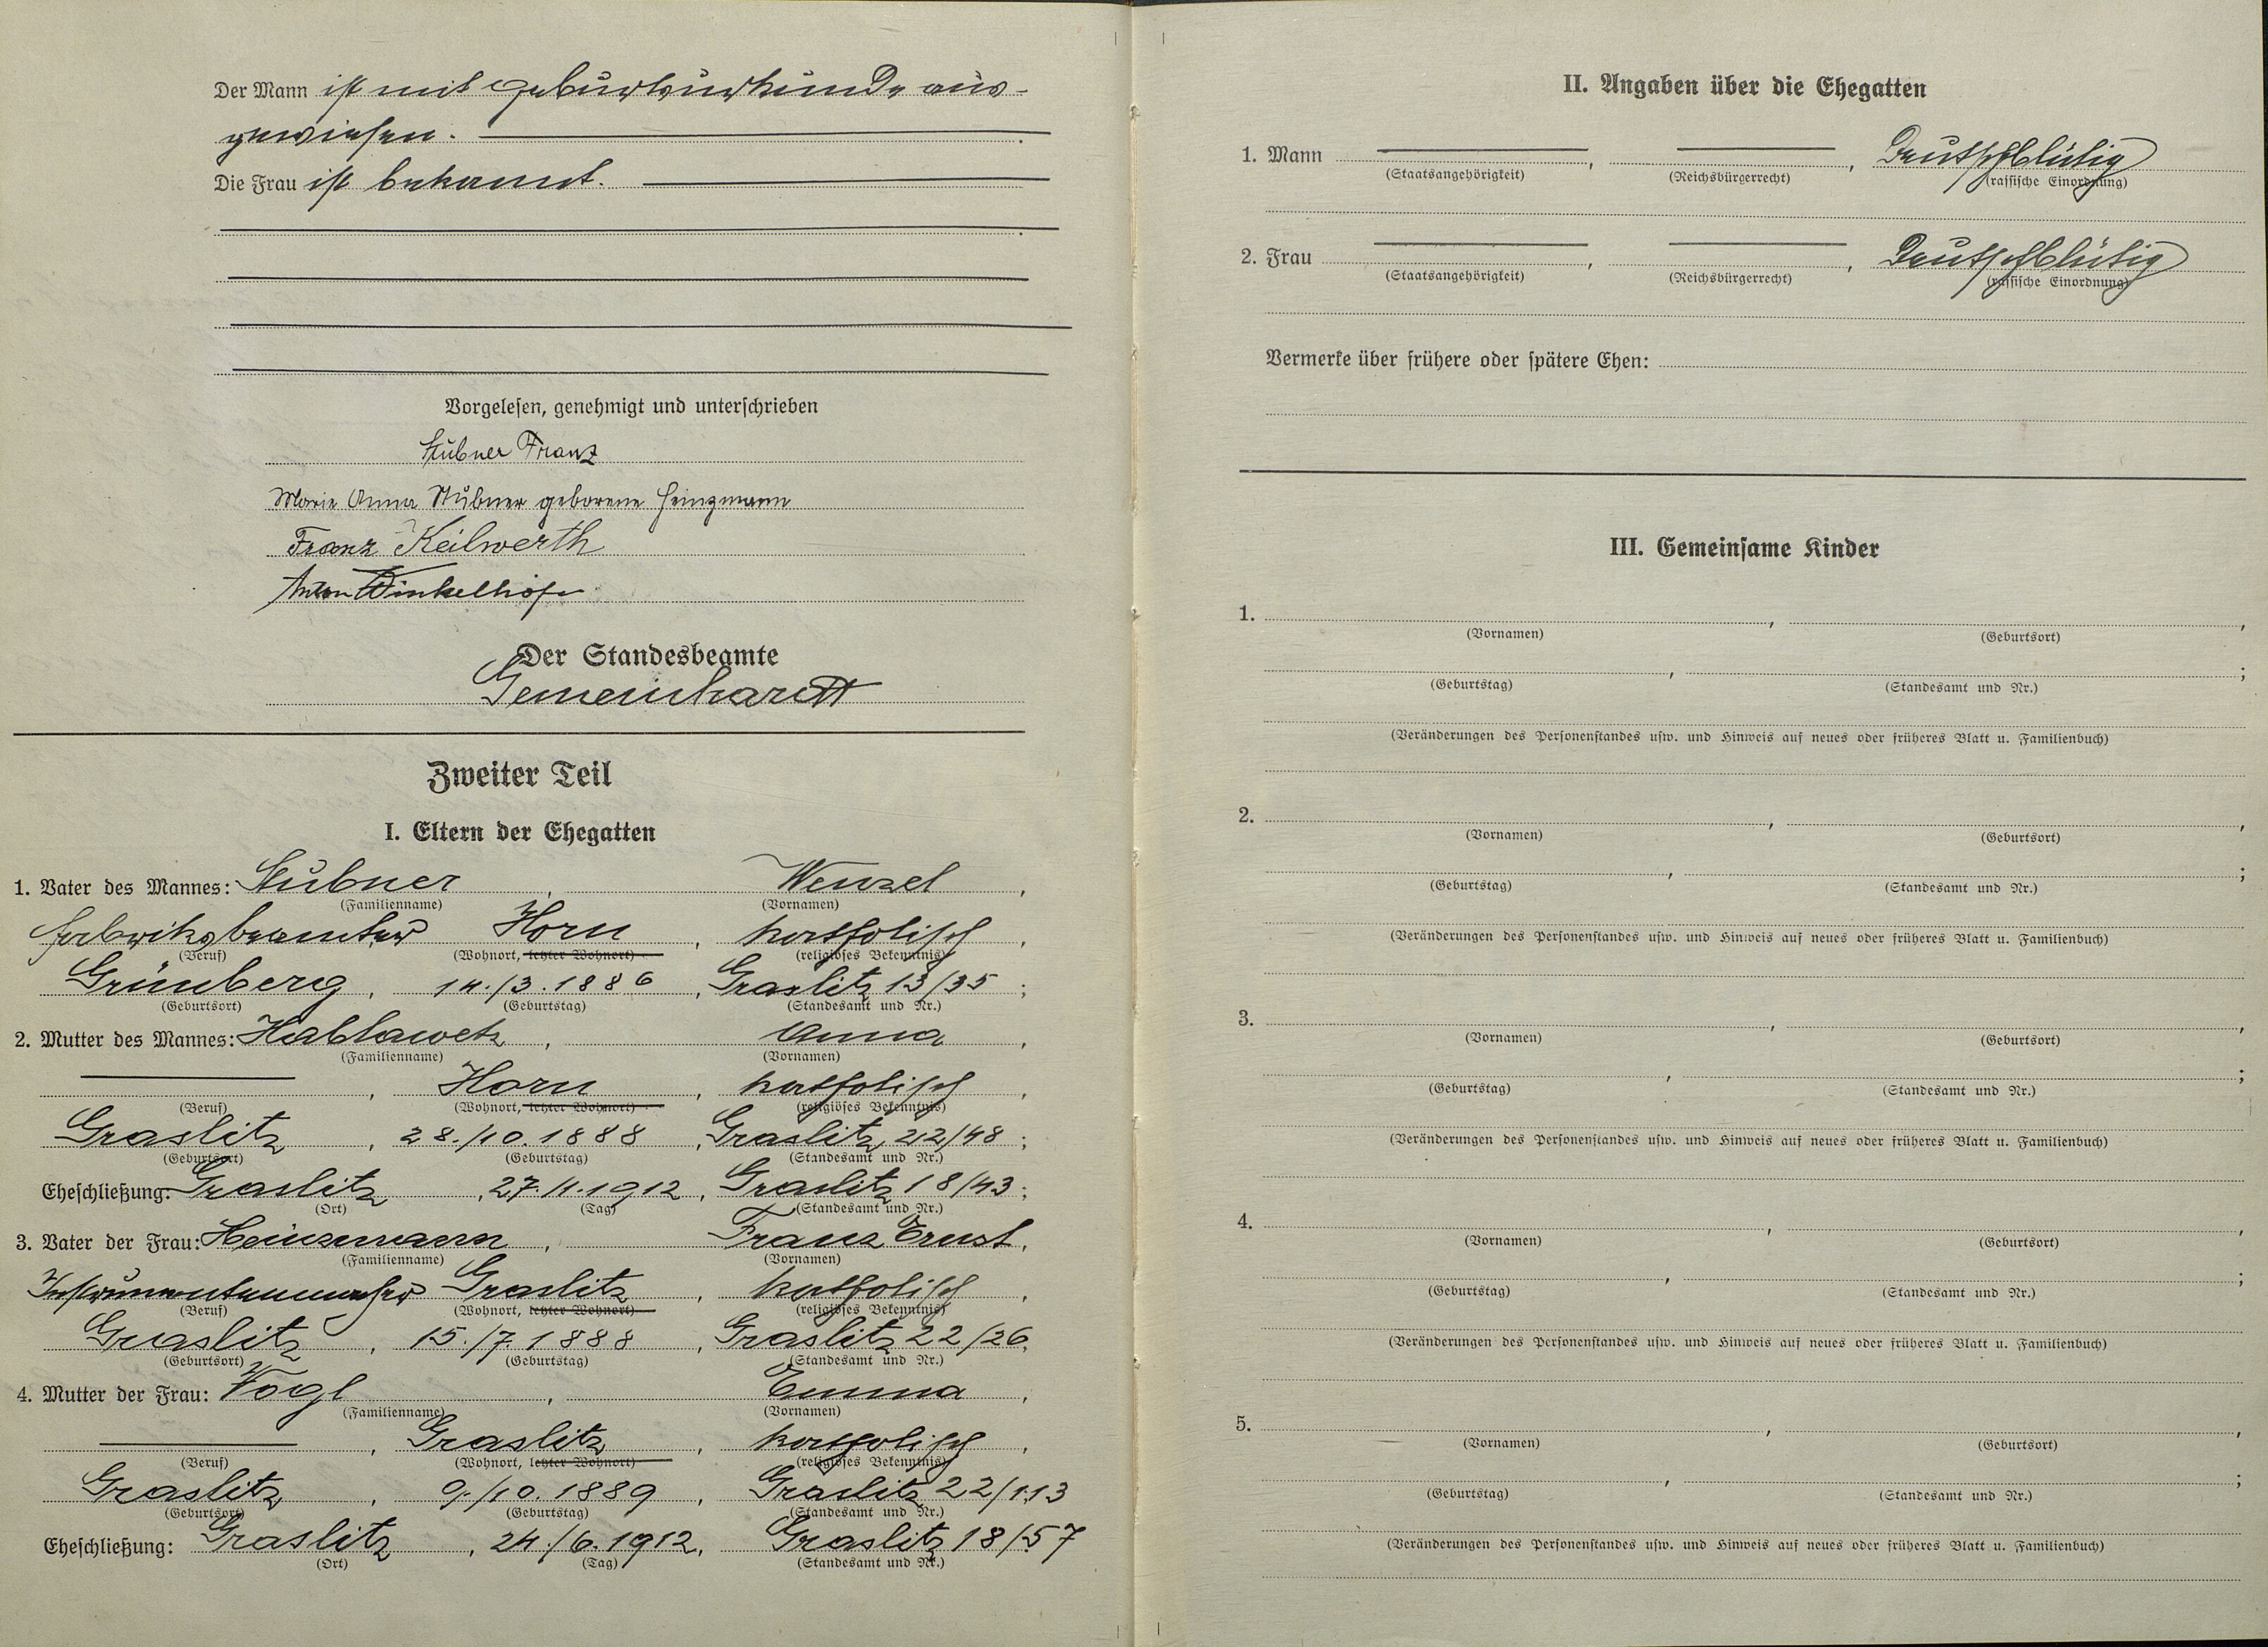 Der Mann ist mit Geburtsurkunde aus-
gewiesen.
Die Frau ist bekannt.
Vorgelesen, genehmigt und unterschrieben
Stübner Franz
Marie Anna Stübner geborene Heinzmann
Franz Keilwerth
Anton Winkelhöfer
Der Standesbeamte
Gemeinhardt
Zweiter Teil
I. Eltern der Ehegatten
1. Vater des Mannes: Stübner, Wenzel,
(Familienname) (Vornamen)
Fabriksbeamter Horn, katholisch,
(Beruf) (Wohnort, letzter Wohnort) (religiöses Bekenntnis)
Grünberg, 14./3.1886, Graslitz 13/35;
(Geburtsort) (Geburtstag) (Standesamt und Nr.)
2. Mutter des Mannes: Hablawetz, Anna,
(Familienname) (Vornamen)
, Horn, katholisch,
(Beruf) (Wohnort, letzter Wohnort) (religiöses Bekenntnis)
Graslitz, 28./10.1888, Graslitz 22/48;
(Geburtsort) (Geburtstag) (Standesamt und Nr.)
Eheschließung: Graslitz, 27./4.1912, Graslitz 18/43;
(Ort) (Tag) (Standesamt und Nr.)
3. Vater der Frau: Heinzmann, Franz Ernst,
(Familienname) (Vornamen)
Instrumentenmacher Graslitz, katholisch,
(Beruf) (Wohnort, letzter Wohnort) (religiöses Bekenntnis)
Graslitz, 15./7.1888, Graslitz 22/26;
(Geburtsort) (Geburtstag) (Standesamt und Nr.)
4. Mutter der Frau: Vogl, Emma,
(Familienname) (Vornamen)
, Graslitz, katholisch,
(Beruf) (Wohnort, letzter Wohnort) (religiöses Bekenntnis)
Graslitz, 9./10.1889, Graslitz 22/113
(Geburtsort) (Geburtstag) (Standesamt und Nr.)
Eheschließung: Graslitz, 24./6.1912, Graslitz 18/57
(Ort) (Tag) (Standesamt und Nr.)
II. Angaben über die Ehegatten
1. Mann , , Deutschblütig
(Staatsangehörigkeit) (Reichsbürgerrecht) (rassische Einordnung)
2. Frau , , Deutschblütig
(Staatsangehörigkeit) (Reichsbürgerrecht) (rassische Einordnung)
Vermerke über frühere oder spätere Ehen:
III. Gemeinsame Kinder
1. , ,
(Vornamen) (Geburtsort)
, ;
(Geburtstag) (Standesamt und Nr.)
(Veränderungen des Personenstandes usw. und Hinweis auf neues oder früheres Blatt u. Familienbuch)
2. , ,
(Vornamen) (Geburtsort)
, ;
(Geburtstag) (Standesamt und Nr.)
(Veränderungen des Personenstandes usw. und Hinweis auf neues oder früheres Blatt u. Familienbuch)
3. , ,
(Vornamen) (Geburtsort)
, ;
(Geburtstag) (Standesamt und Nr.)
(Veränderungen des Personenstandes usw. und Hinweis auf neues oder früheres Blatt u. Familienbuch)
4. , ,
(Vornamen) (Geburtsort)
, ;
(Geburtstag) (Standesamt und Nr.)
(Veränderungen des Personenstandes usw. und Hinweis auf neues oder früheres Blatt u. Familienbuch)
5. , ,
(Vornamen) (Geburtsort)
, ;
(Geburtstag) (Standesamt und Nr.)
(Veränderungen des Personenstandes usw. und Hinweis auf neues oder früheres Blatt u. Familienbuch)